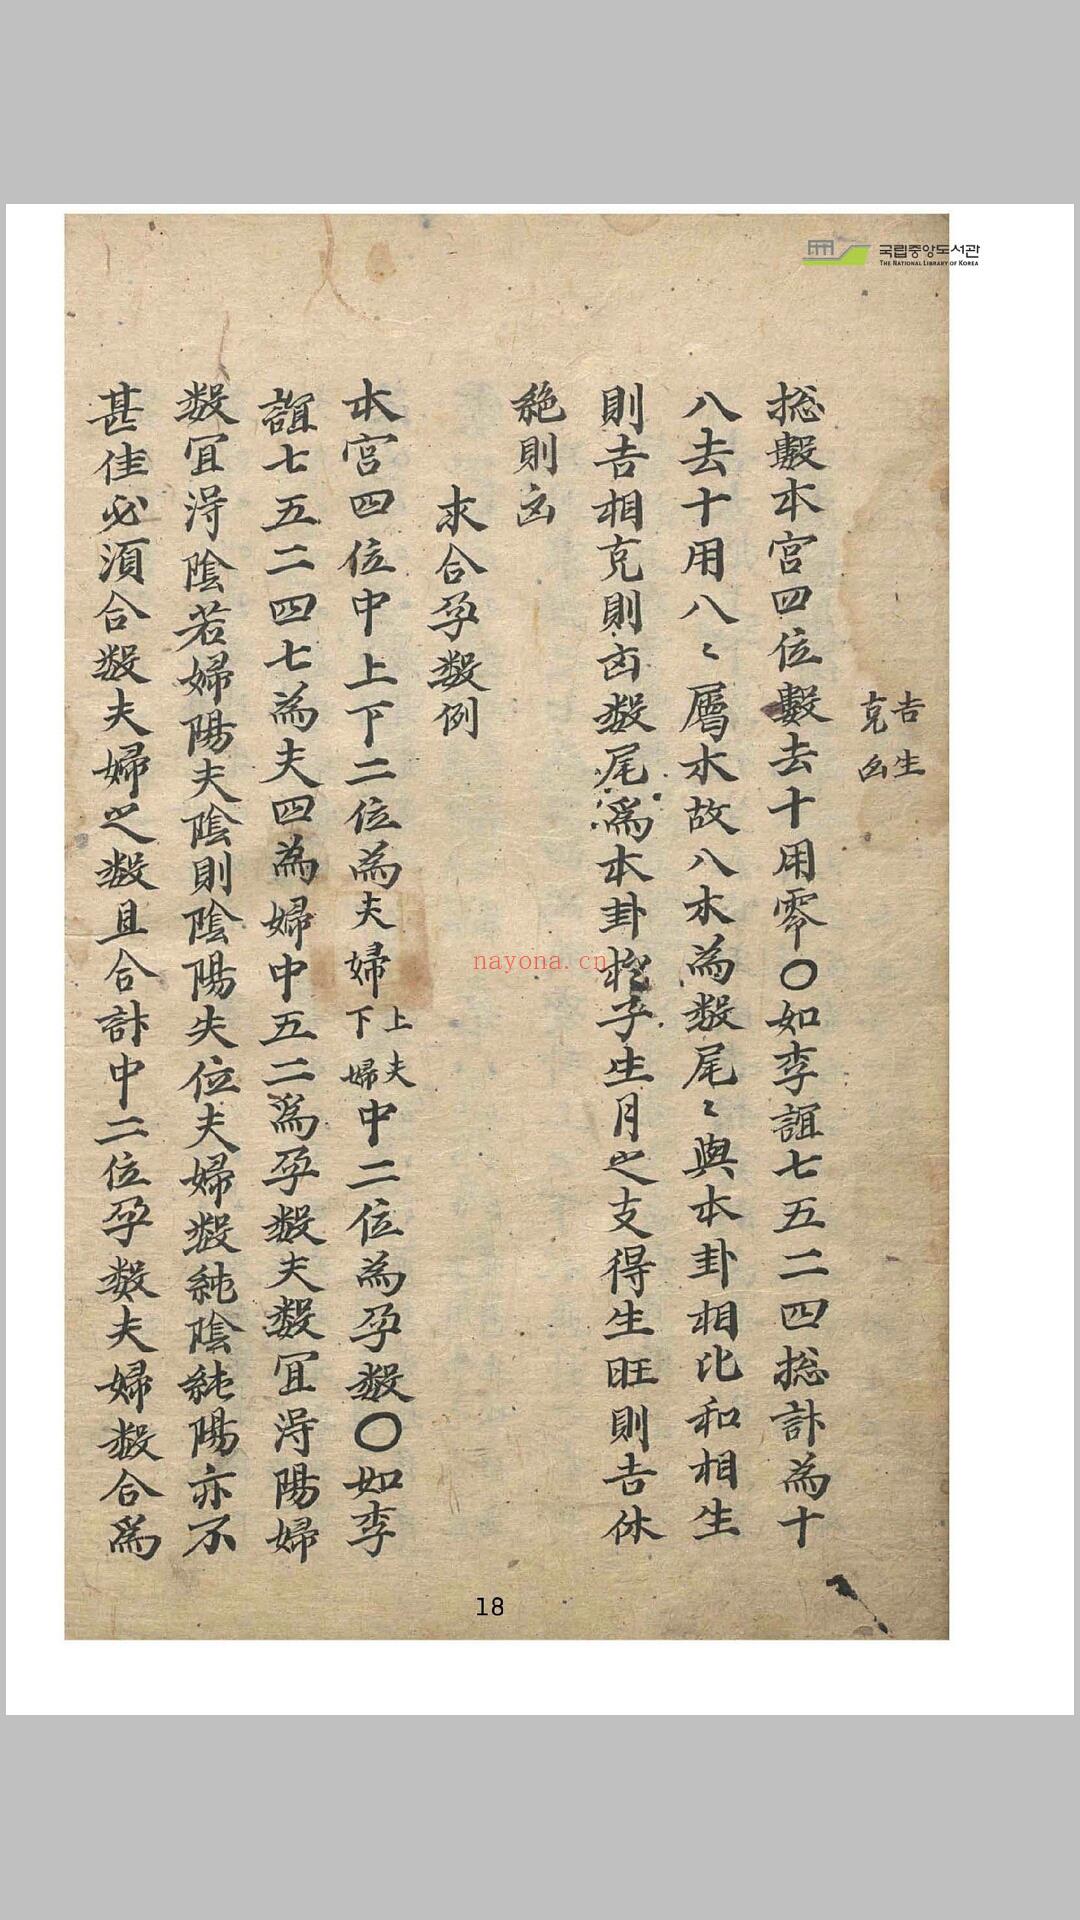 국립중앙도서관
THE NATIONAL LIBRARY OF KOREA
吉生
克凶
捴數本宮四位數去十用零〇如李誼七五二四捴計為十
八去十用八〻屬水故八水為数尾〻與本卦相比和相生
則吉相克則凶数尾為本卦扵子生月之支得生旺則吉休
絶則凶
求合孕数例
本宮四位中上下二位為夫婦上夫下婦中二位為孕数〇如李
誼七五二四七為夫四為婦中五二為孕数夫数冝淂陽婦
数冝淂陰若婦陽夫陰則陰陽失位夫婦数純陰純陽亦不
甚佳必須合数夫婦之数且合計中二位孕数夫婦数合為
nayona.cn
18